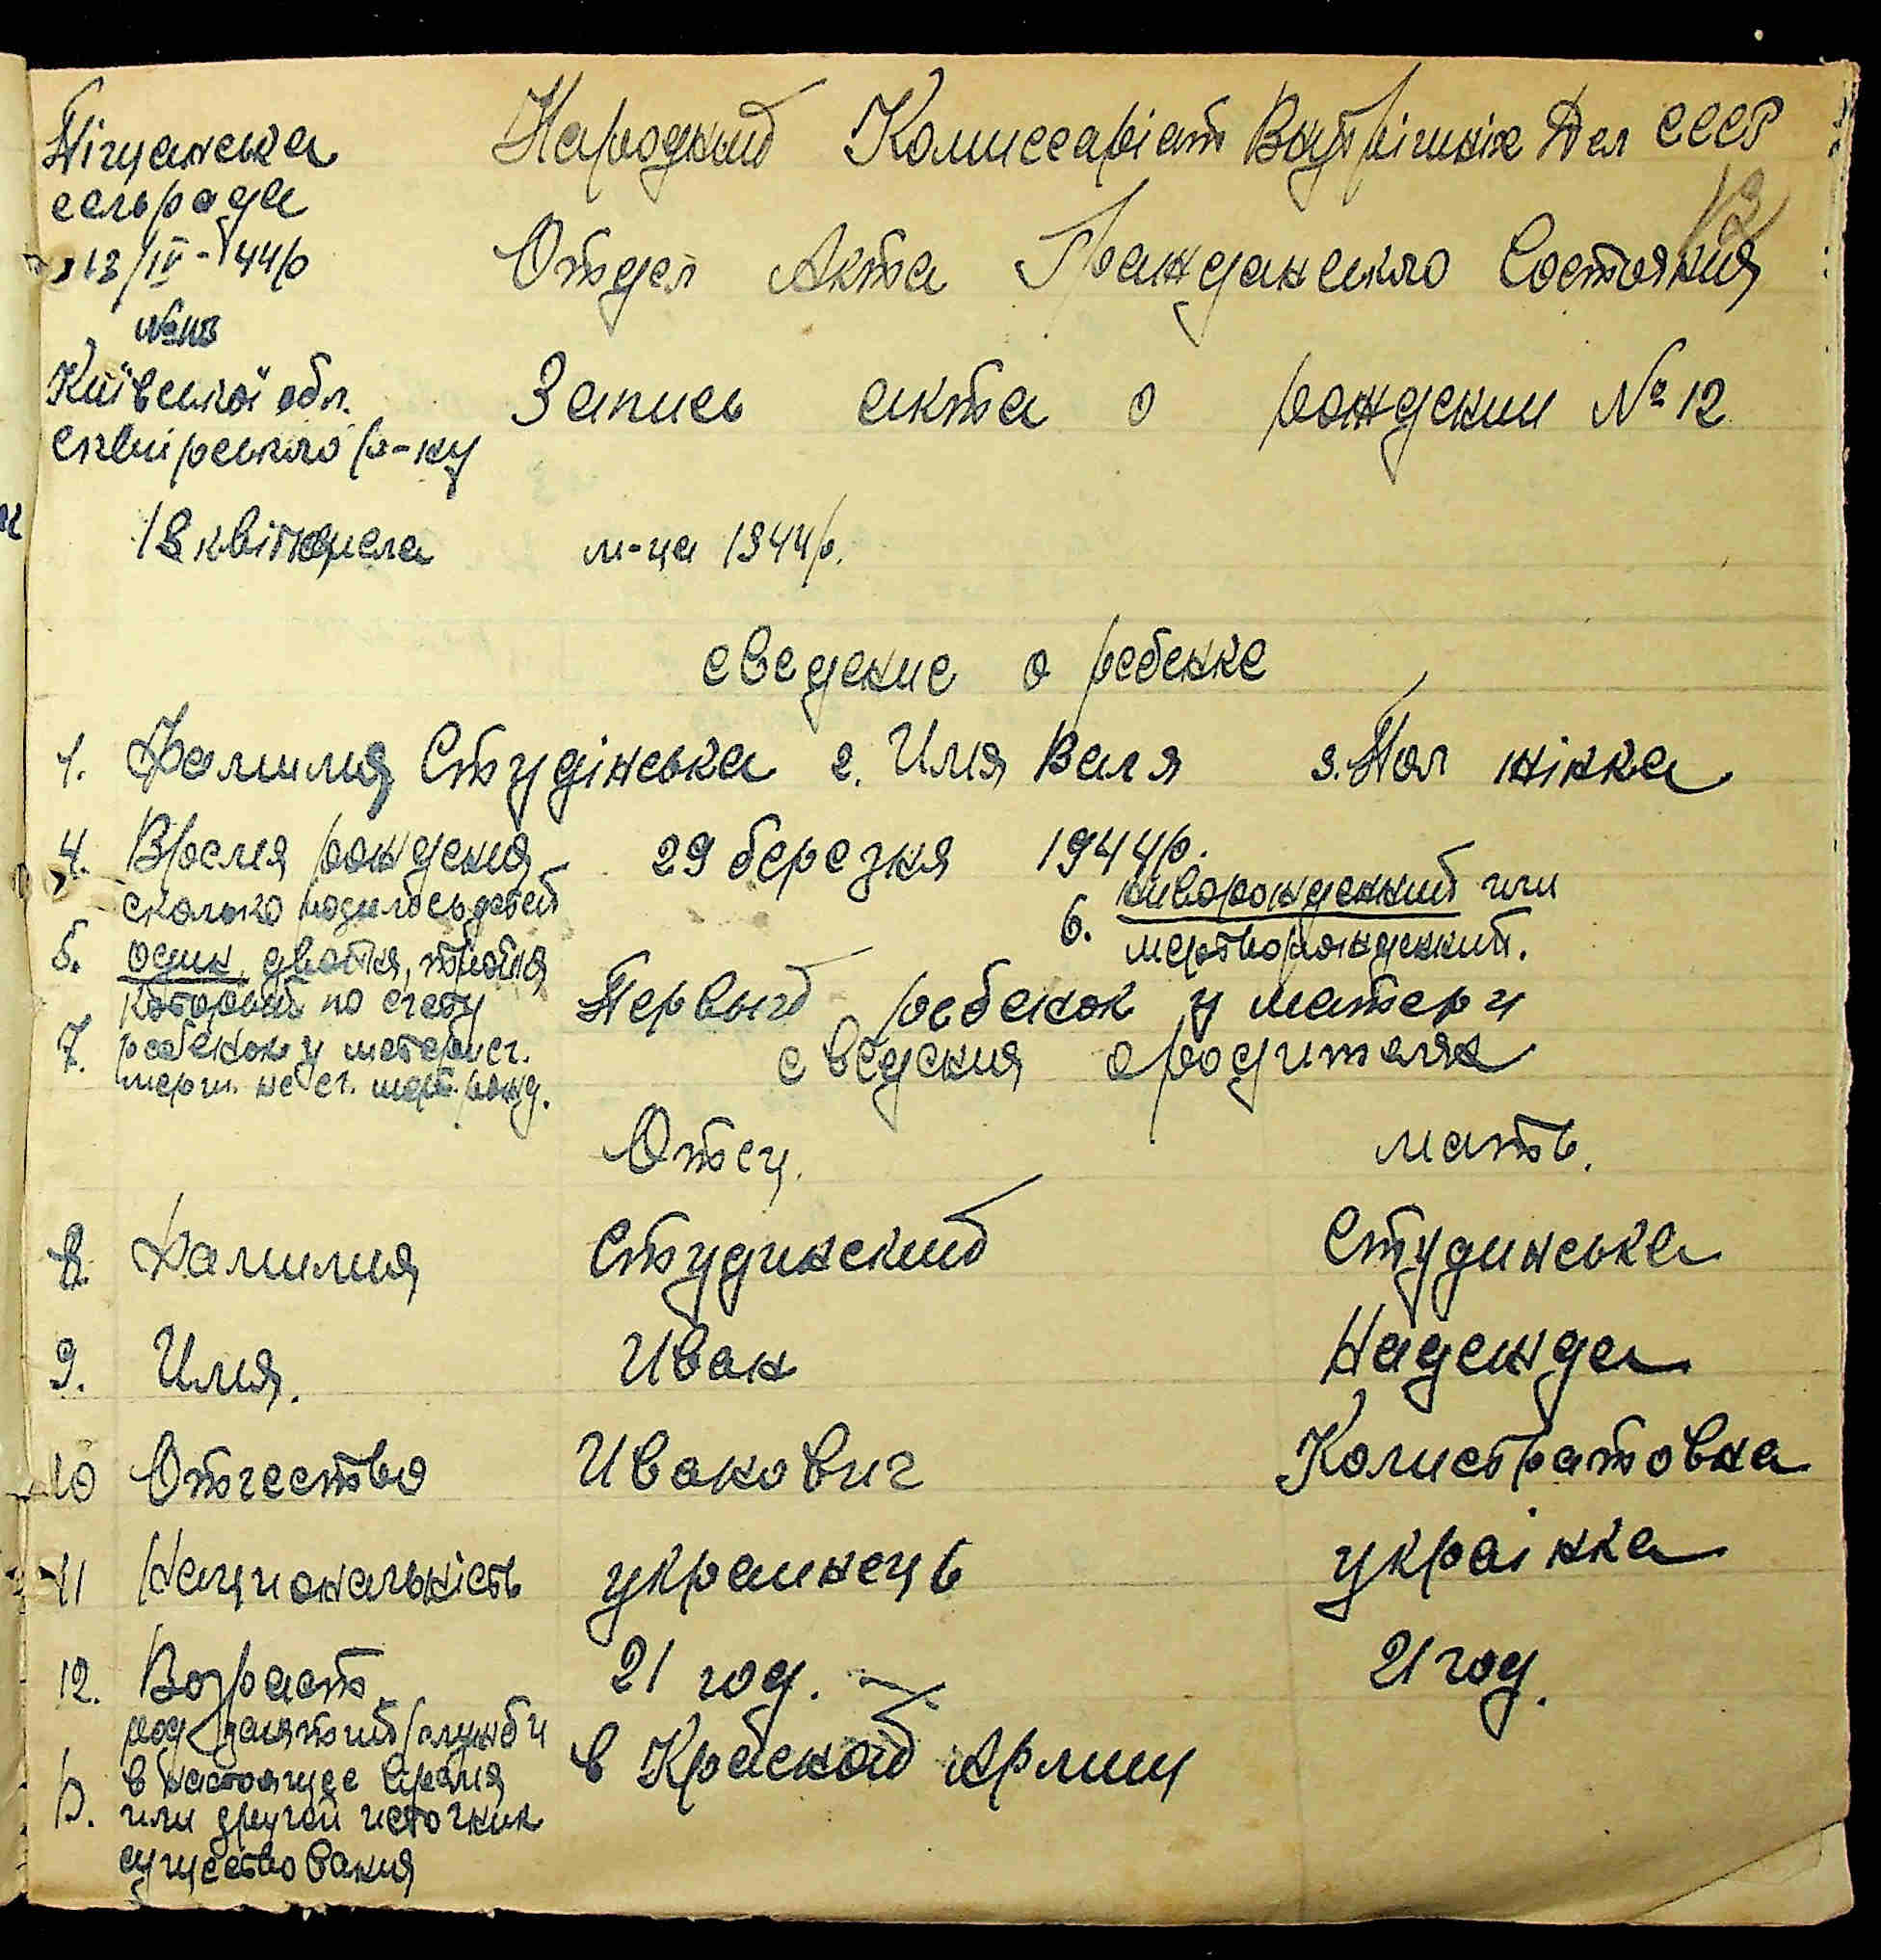 Піщанська
сельрада
13/IV-44р
Київської обл.
сквирського р-ну
Народный Комиссаріат Внутрішніх Дел СССР
12
Отдел Акта Гражданського Состояния
Запись акта о рождении № 12
18 м-ца 1944р.
сведение о ребенке
1. Фамилия Студінська 2. Имя Валя 3. Пол жінка
4. Время рождения 29 березня 1944р.
сколько родилось детей
5. один, двойня, тройня
6. живорожденний или
мертворожденний.
который по счету
7. ребенок у матери сч.
мерш. не сч. мертворожд.
Первый ребенок у матери
сведения о родителях
Отец. мать.
8. Фамилия Студинский Студинська
9. Имя. Иван Надежда
10 Отчество Иванович Калистратовна
11 Национальність украинець українка
12. Возраст 21 год. 21 год.
род занятий/служби
в настоящее время
13. или другой источник
существования
в Красной Армии